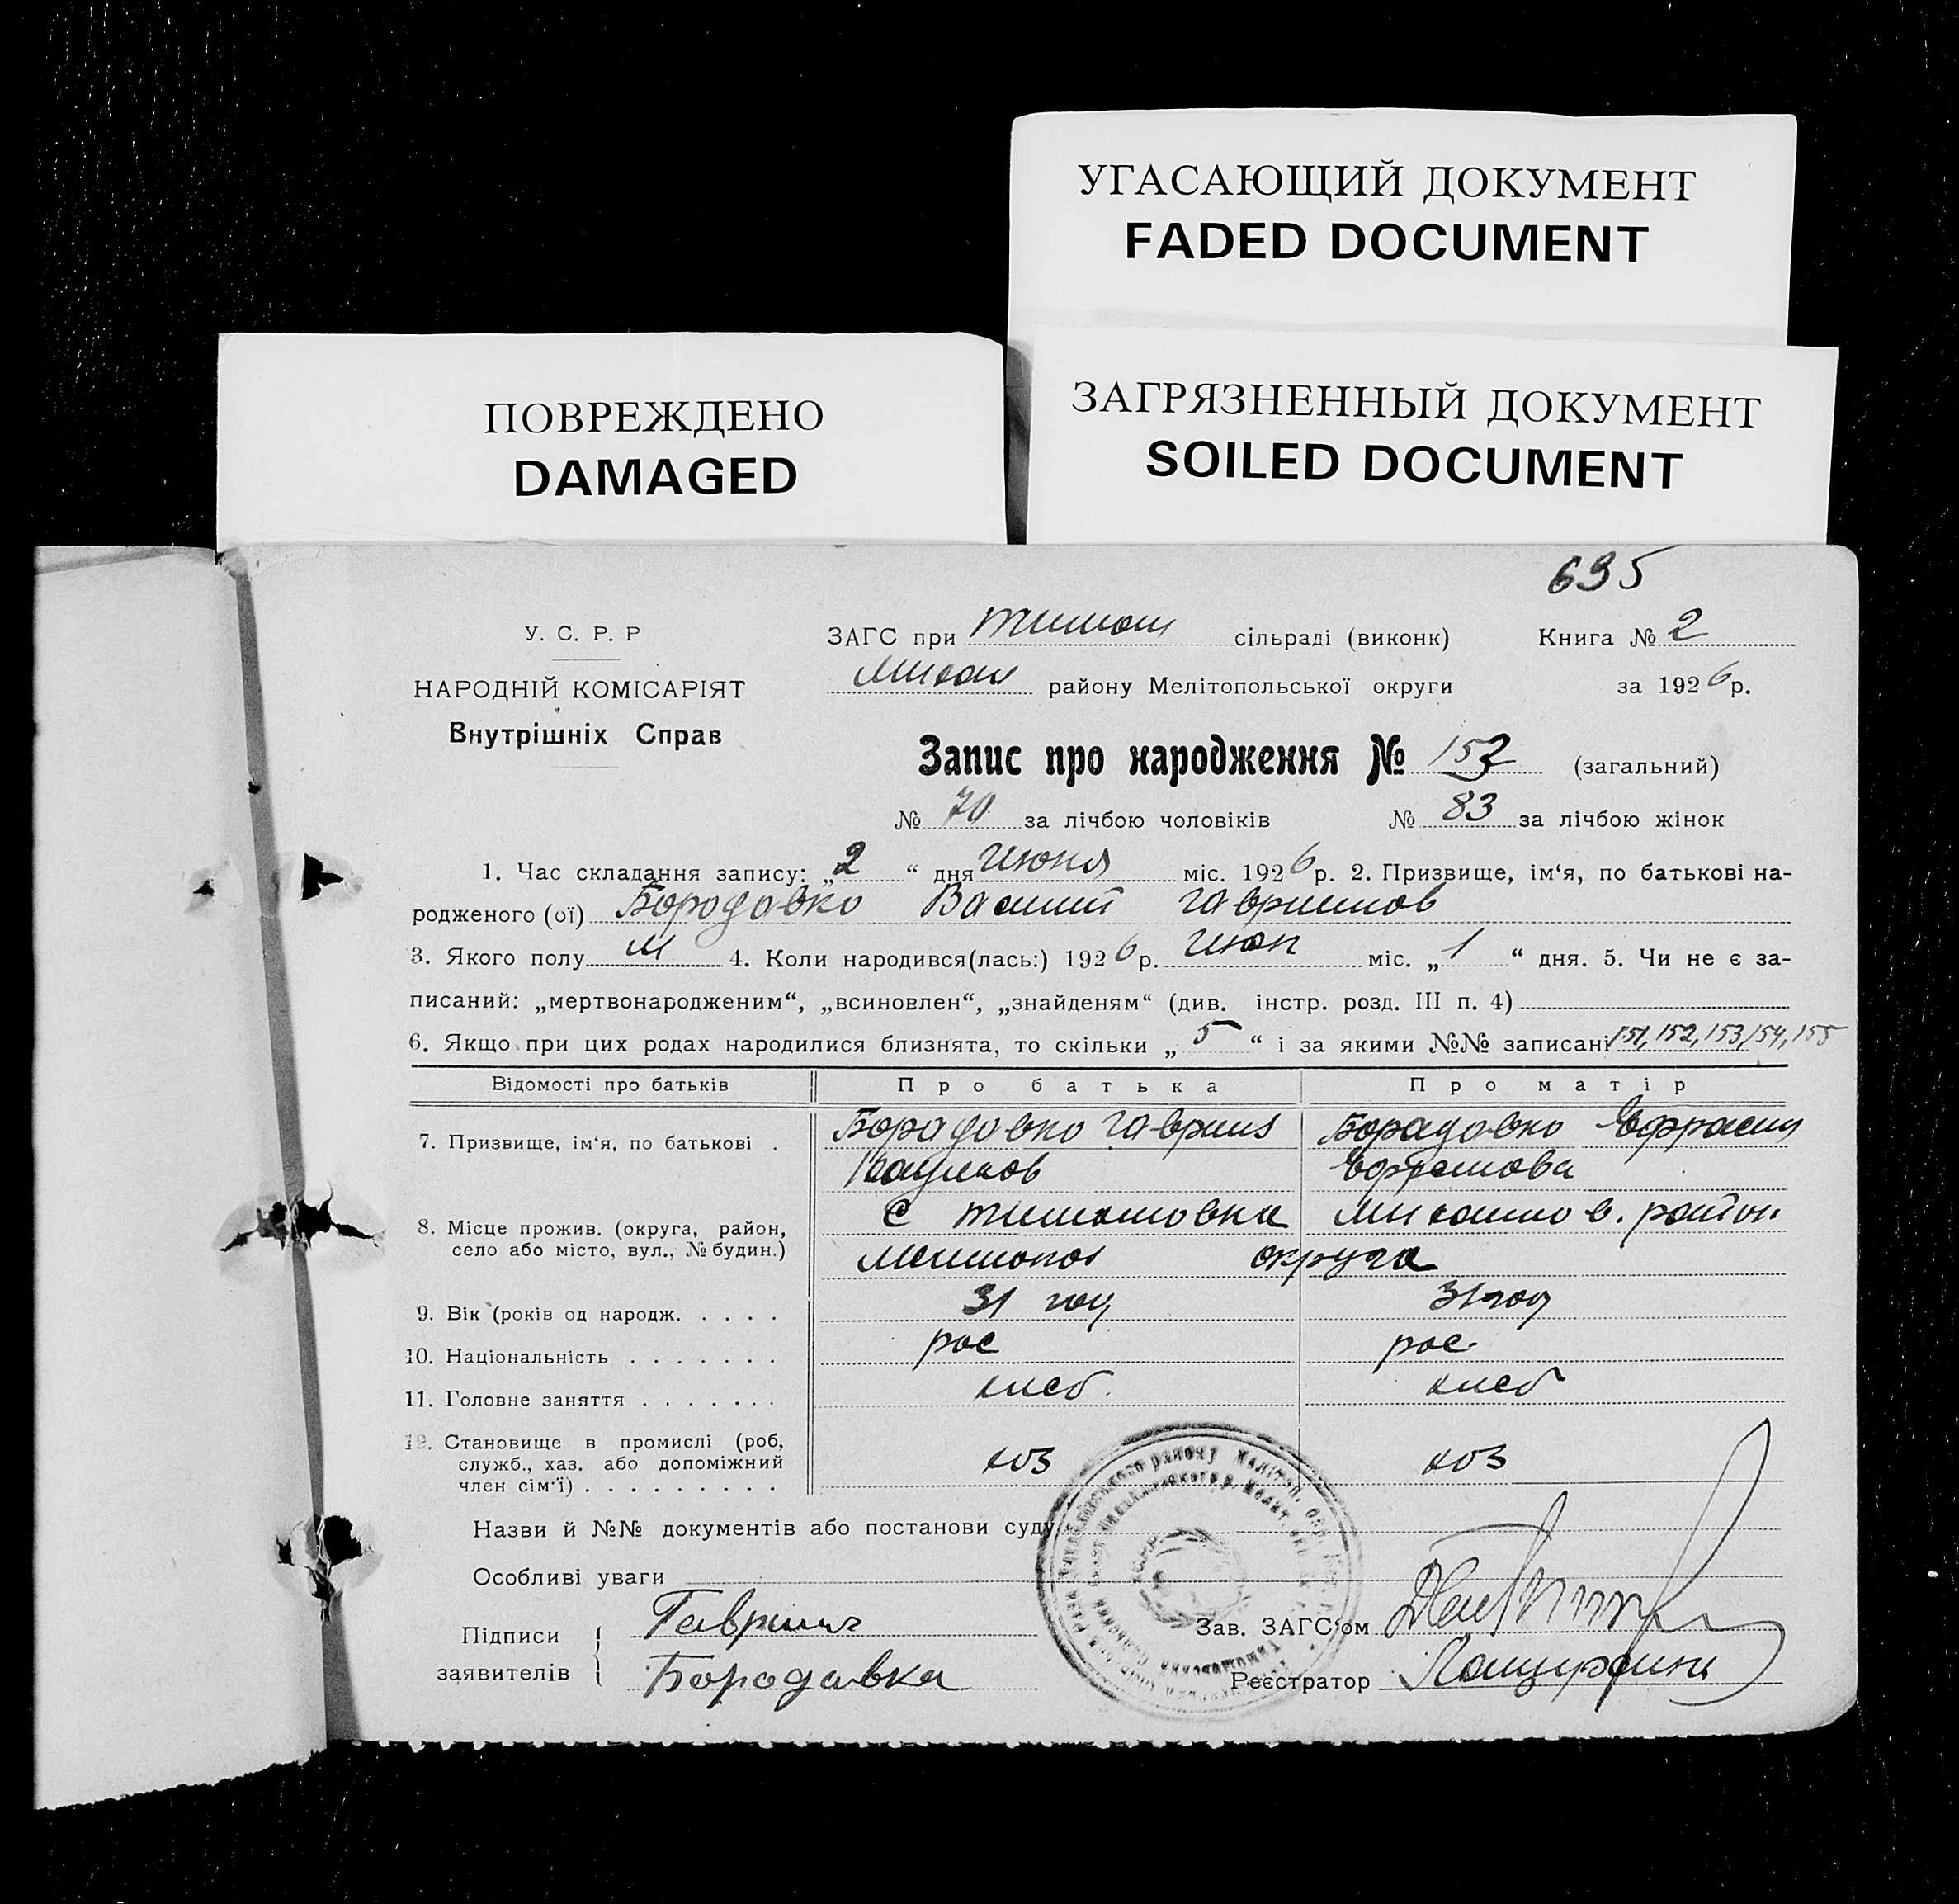 УГАСАЮЩИЙ ДОКУМЕНТ
FADED DOCUMENT
ПОВРЕЖДЕНО
DAMAGED
ЗАГРЯЗНЕННЫЙ ДОКУМЕНТ
SOILED DOCUMENT
695
У. С. Р. Р
НАРОДНІЙ КОМІСАРІЯТ
Внутрішніх Справ
ЗАГС при Тимош сільраді (виконк) Книга № 2
Михай району Мелітопольської округи за 1926 р.
Запис про народження № 153 (загальний)
№ 70 за лічбою чоловіків № 83 за лічбою жінок
1. Час складання запису: „2“ дня Июня міс. 1926 р. 2. Призвище, ім‘я, по батькові на-
родженого (ої) Бородавко Василий Гаврилов
3. Якого полу м 4. Коли народився(лась:) 1926 р. Июн міс. „1“ дня. 5. Чи не є за-
писаний: „мертвонародженим“, „всиновлен“, „знайденям“ (див. інстр. розд. III п. 4)
6. Якщо при цих родах народилися близнята, то скільки „5“ і за якими №№ записані 151, 152, 153, 154, 155
Відомості про батьків Про батька Про матір
7. Призвище, ім‘я, по батькові . Борадавко Гаврил Борадавко Ефросин
Ефремова
8. Місце прожив. (округа, район, с Тимошовка Михайлов. район
село або місто, вул., № будин.) Мелитопол округа
9. Вік (років од народж. . . . . 31 год 31 год
10. Національність . . . . . . . рос рос
11. Головне заняття . . . . . . . хлеб. хлеб
12. Становище в промислі (роб, хоз хоз
служб., хаз. або допоміжний
член сім‘ї) . . . . . . . . .
Назви й №№ документів або постанови суду
Особливі уваги
Підписи Гаврил
заявителів Бородавка
Зав. ЗАГС‘ом
Реєстратор